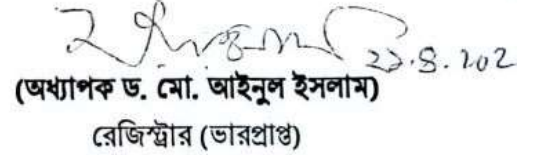 (অধ্যাপক ড. মো. আইনুল ইসলাম)
রেজিস্ট্রার (ভারপ্রাপ্ত)